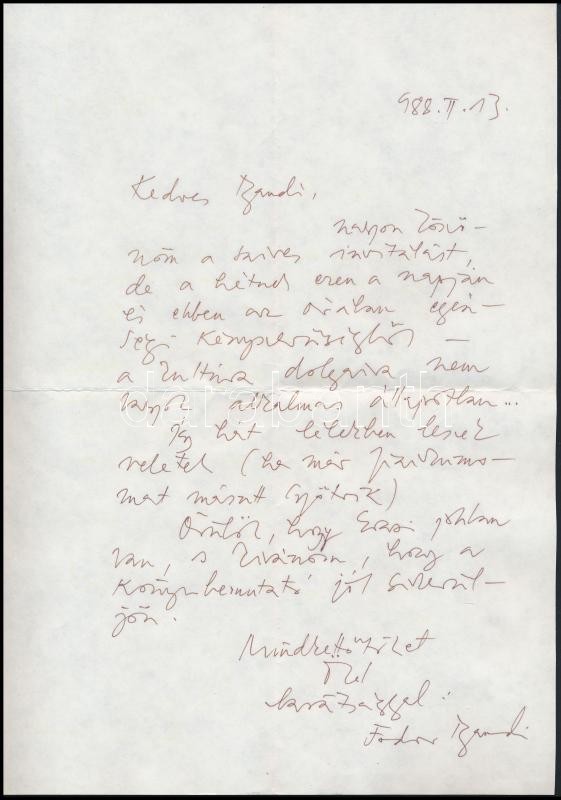 988. II. 13.
Kedves Bandi,
nagyon köszö-
nöm a szives invitálást,
de a hétnek ezen a napján
és ebben az órában egész-
ségi kényszerüségből –
a kultúra dolgaira nem
vagyok alkalmas állapotban...
Így hát lélekben leszek
veletek (ha már
mat másutt gyötrik)
Örülök, hogy jobban
van, s kívánom, hogy a
könyvbemutató jól sikerül-
jön.
Mindkettőtöket
ölel
barátsággal:
Fodor Bandi
darabanth